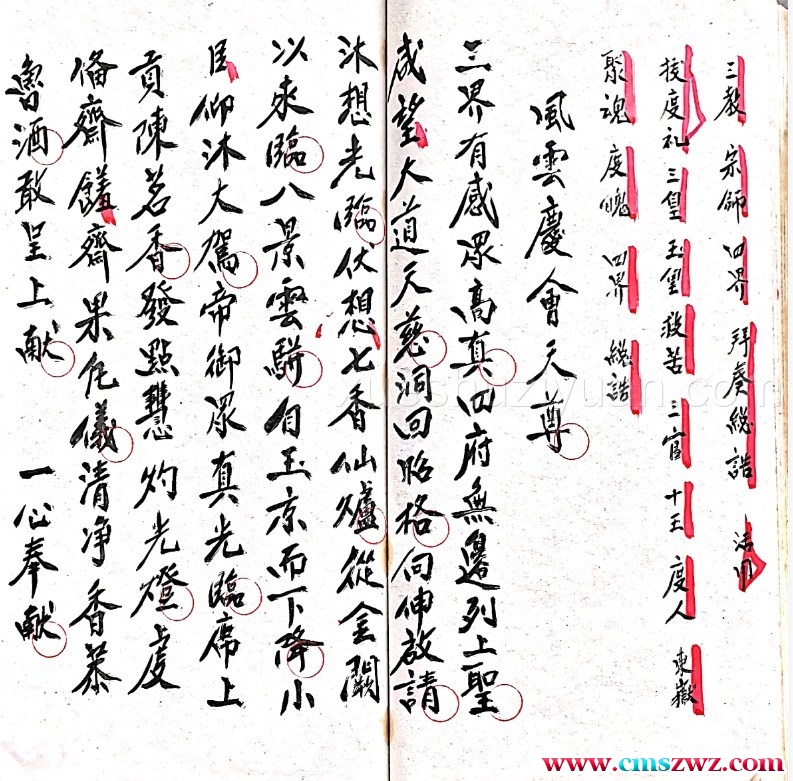 三教 宗師 四界 拜奏総誥
拔度礼 三皇 玉皇 救苦 三官 十王 度人 東嶽
聚魂 度魄 四界 総誥
風雲慶會天尊
三界有感眾高真四府無邊列上聖
咸望大道天慈洞回昭格向伸啟請
沐想光臨伏想七香仙爐從金闕
以來臨八景雲駢自玉京而下降小
臣仰沐大駕帝御眾真光臨席上
貢陳茗香發點慧灼光燈虔
俻齋饈齋果凢儀清净香茶
魯酒敢呈上献 一心奉献
www.cmszwz.com